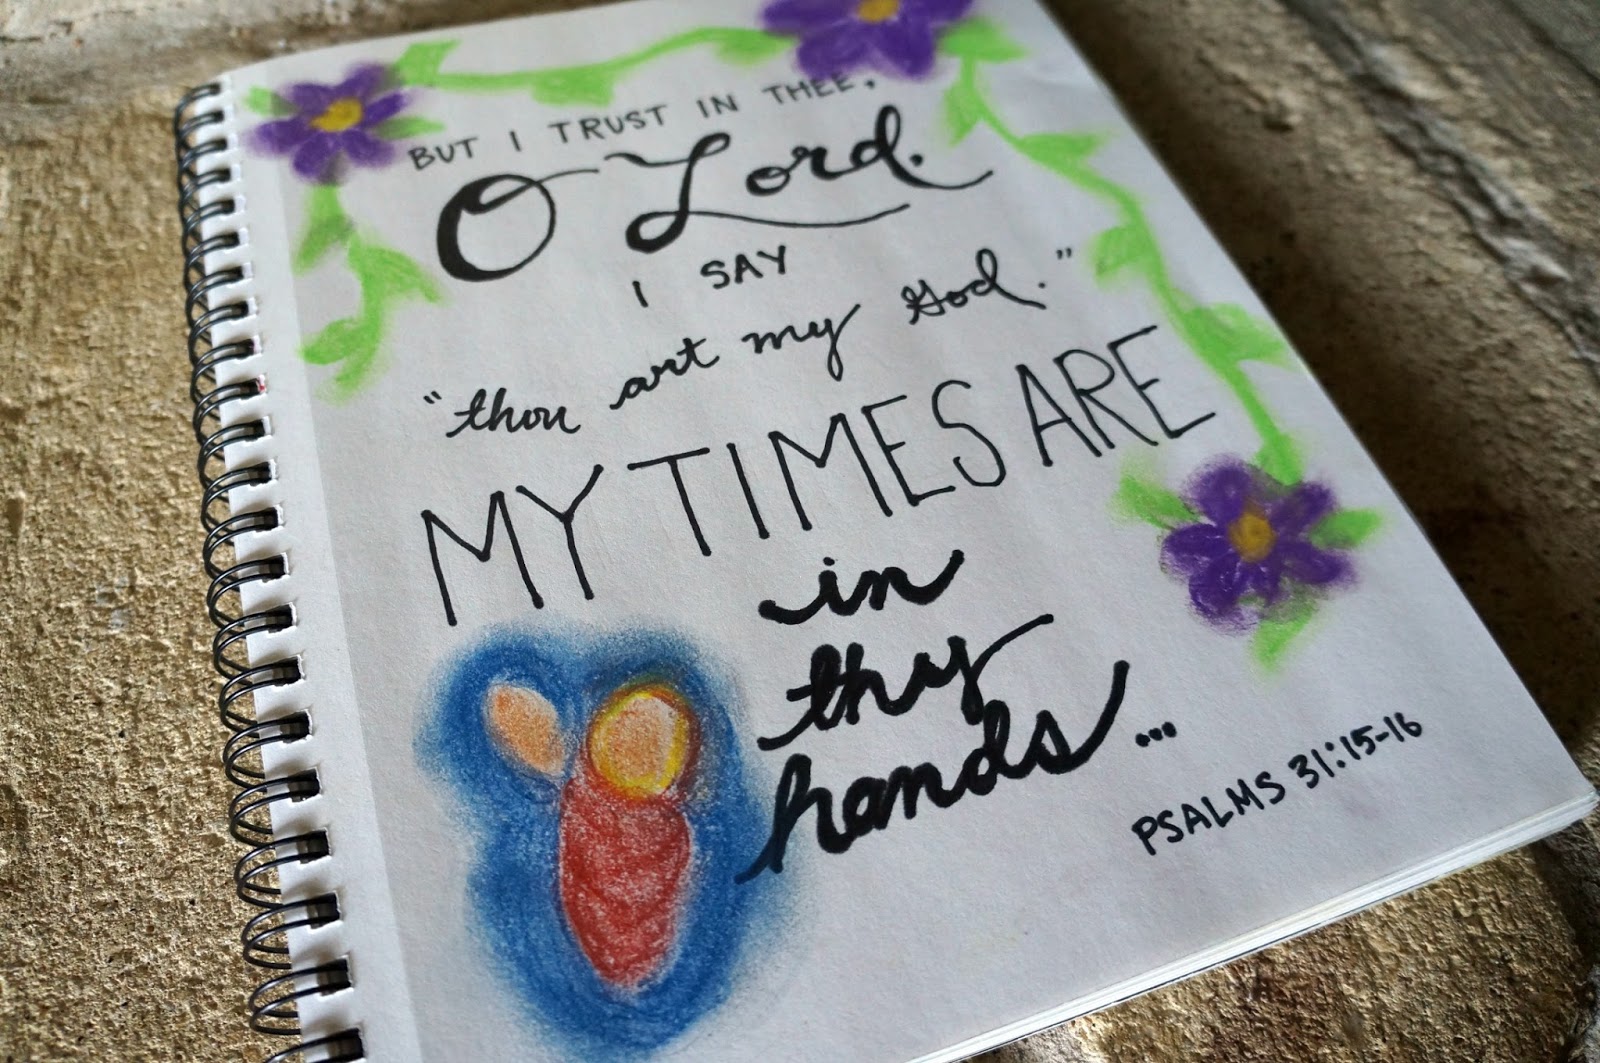 BUT I TRUST IN THEE,
O Lord.
I SAY
"thou art my God."
MY TIMES ARE
in
thy
hands...
PSALMS 31:15-16